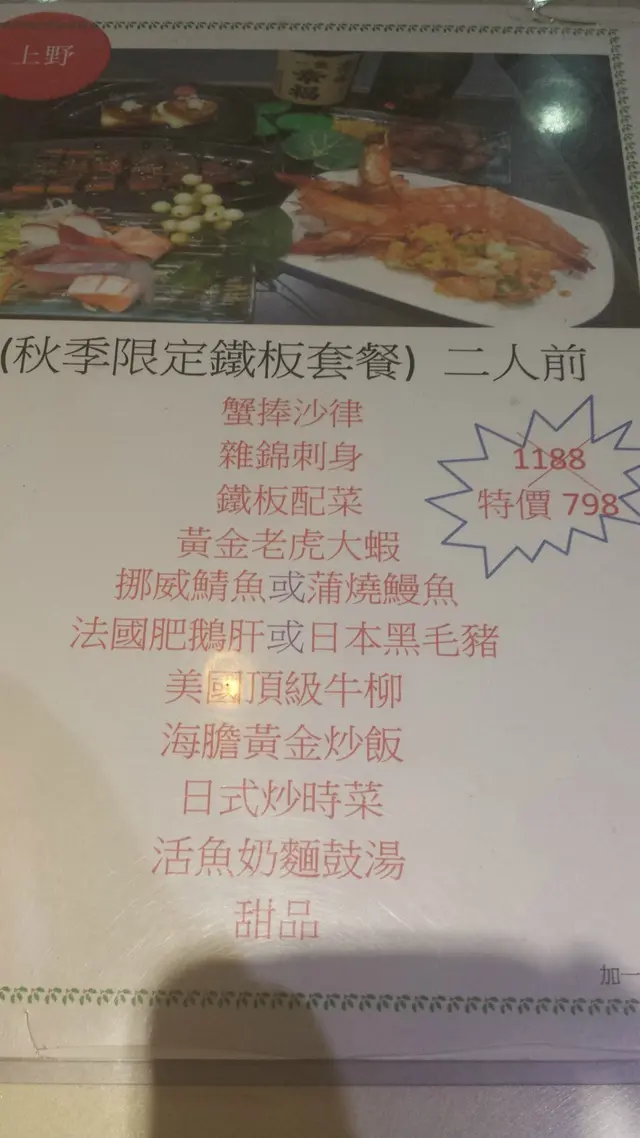 上野
(秋季限定鐵板套餐) 二人前
蟹捧沙律
雜錦刺身
1188
鐵板配菜
特價 798
黃金老虎大蝦
挪威鯖魚或蒲燒鰻魚
法國肥鵝肝或日本黑毛豬
美國頂級牛柳
海膽黃金炒飯
日式炒時菜
活魚奶麵鼓湯
甜品
加一